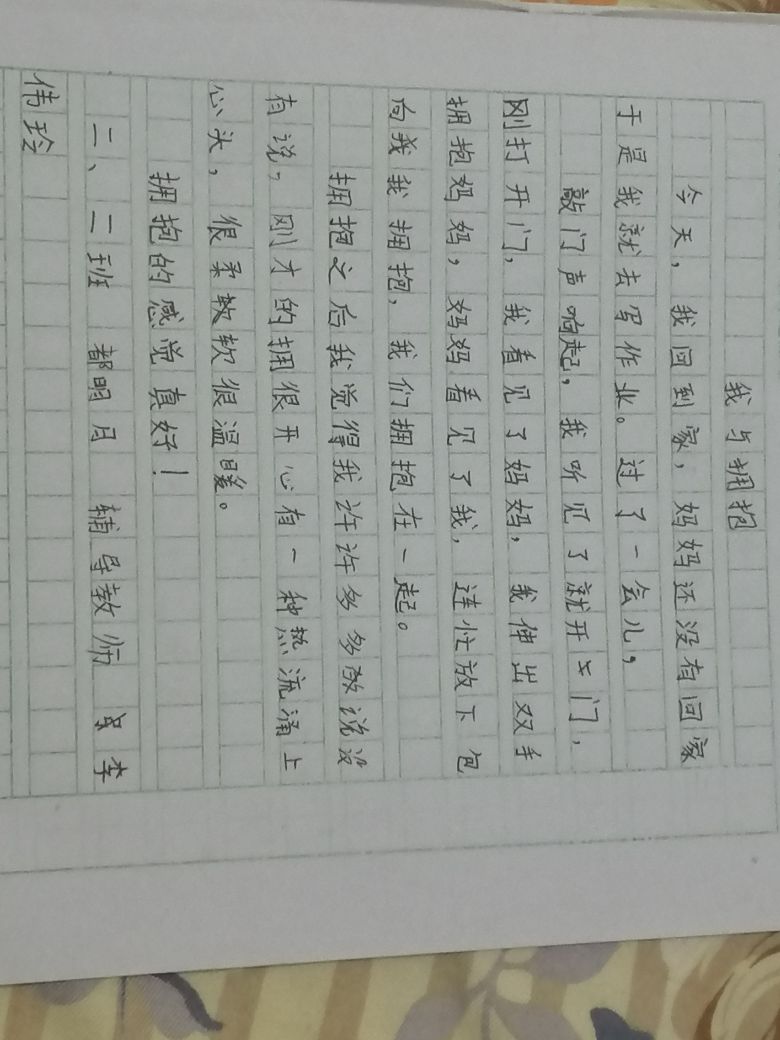 我与拥抱
今天，我回到家，妈妈还没有回家
于是我就去写作业。过了一会儿，
敲门声响起，我听见了就开门，
刚打开门，我看见了妈妈，我伸出双手
拥抱妈妈，妈妈看见了我，连忙放下包
向我我拥抱，我们拥抱在一起。
拥抱之后我觉得我许许多多教说没
有说，刚才的拥很开心有一种热流涌上
心头，很柔软软很温暖。
拥抱的感觉真好！
二、二班 都明月 辅导教师 李
伟玲